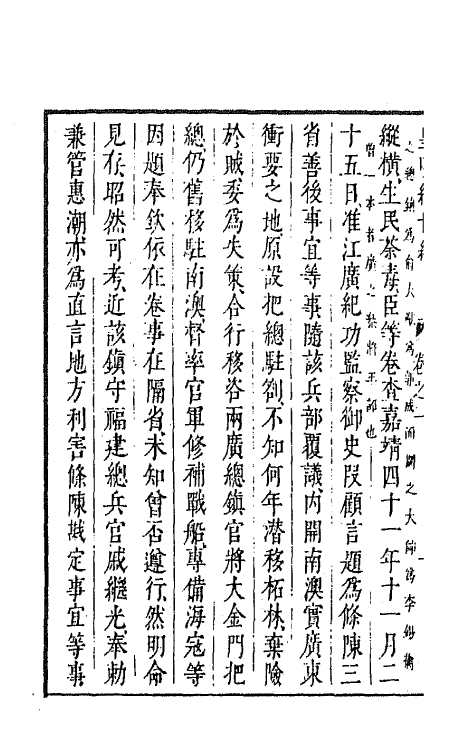 縱橫生民荼毒臣等卷查嘉靖四十一年十一月二
十五日准江廣紀功監察御史段顧言題為條陳三
省善後事宜等事隨該兵部覆議內開南澳實廣東
衝要之地原設把總駐劄不知何年潛移柘林棄險
於賊委為失策合行移咨兩廣總鎮官將大金門把
總仍舊移駐南澳督率官軍修補戰船專備海寇等
因題奉欽依在卷事在隔省未知曾否遵行然明命
見在昭然可考近該鎮守福建總兵官戚繼光奉勅
兼管惠潮亦為直言地方利害條陳戡定事宜等事